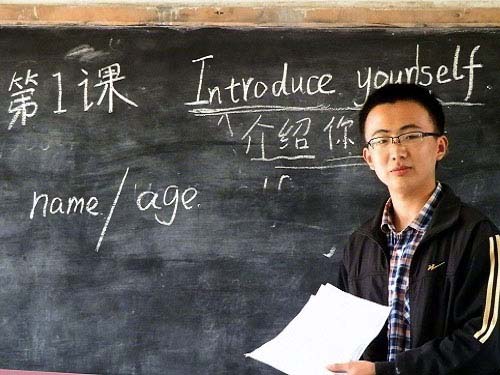 第1课
Introduce yourself.
介绍 你
name/age.